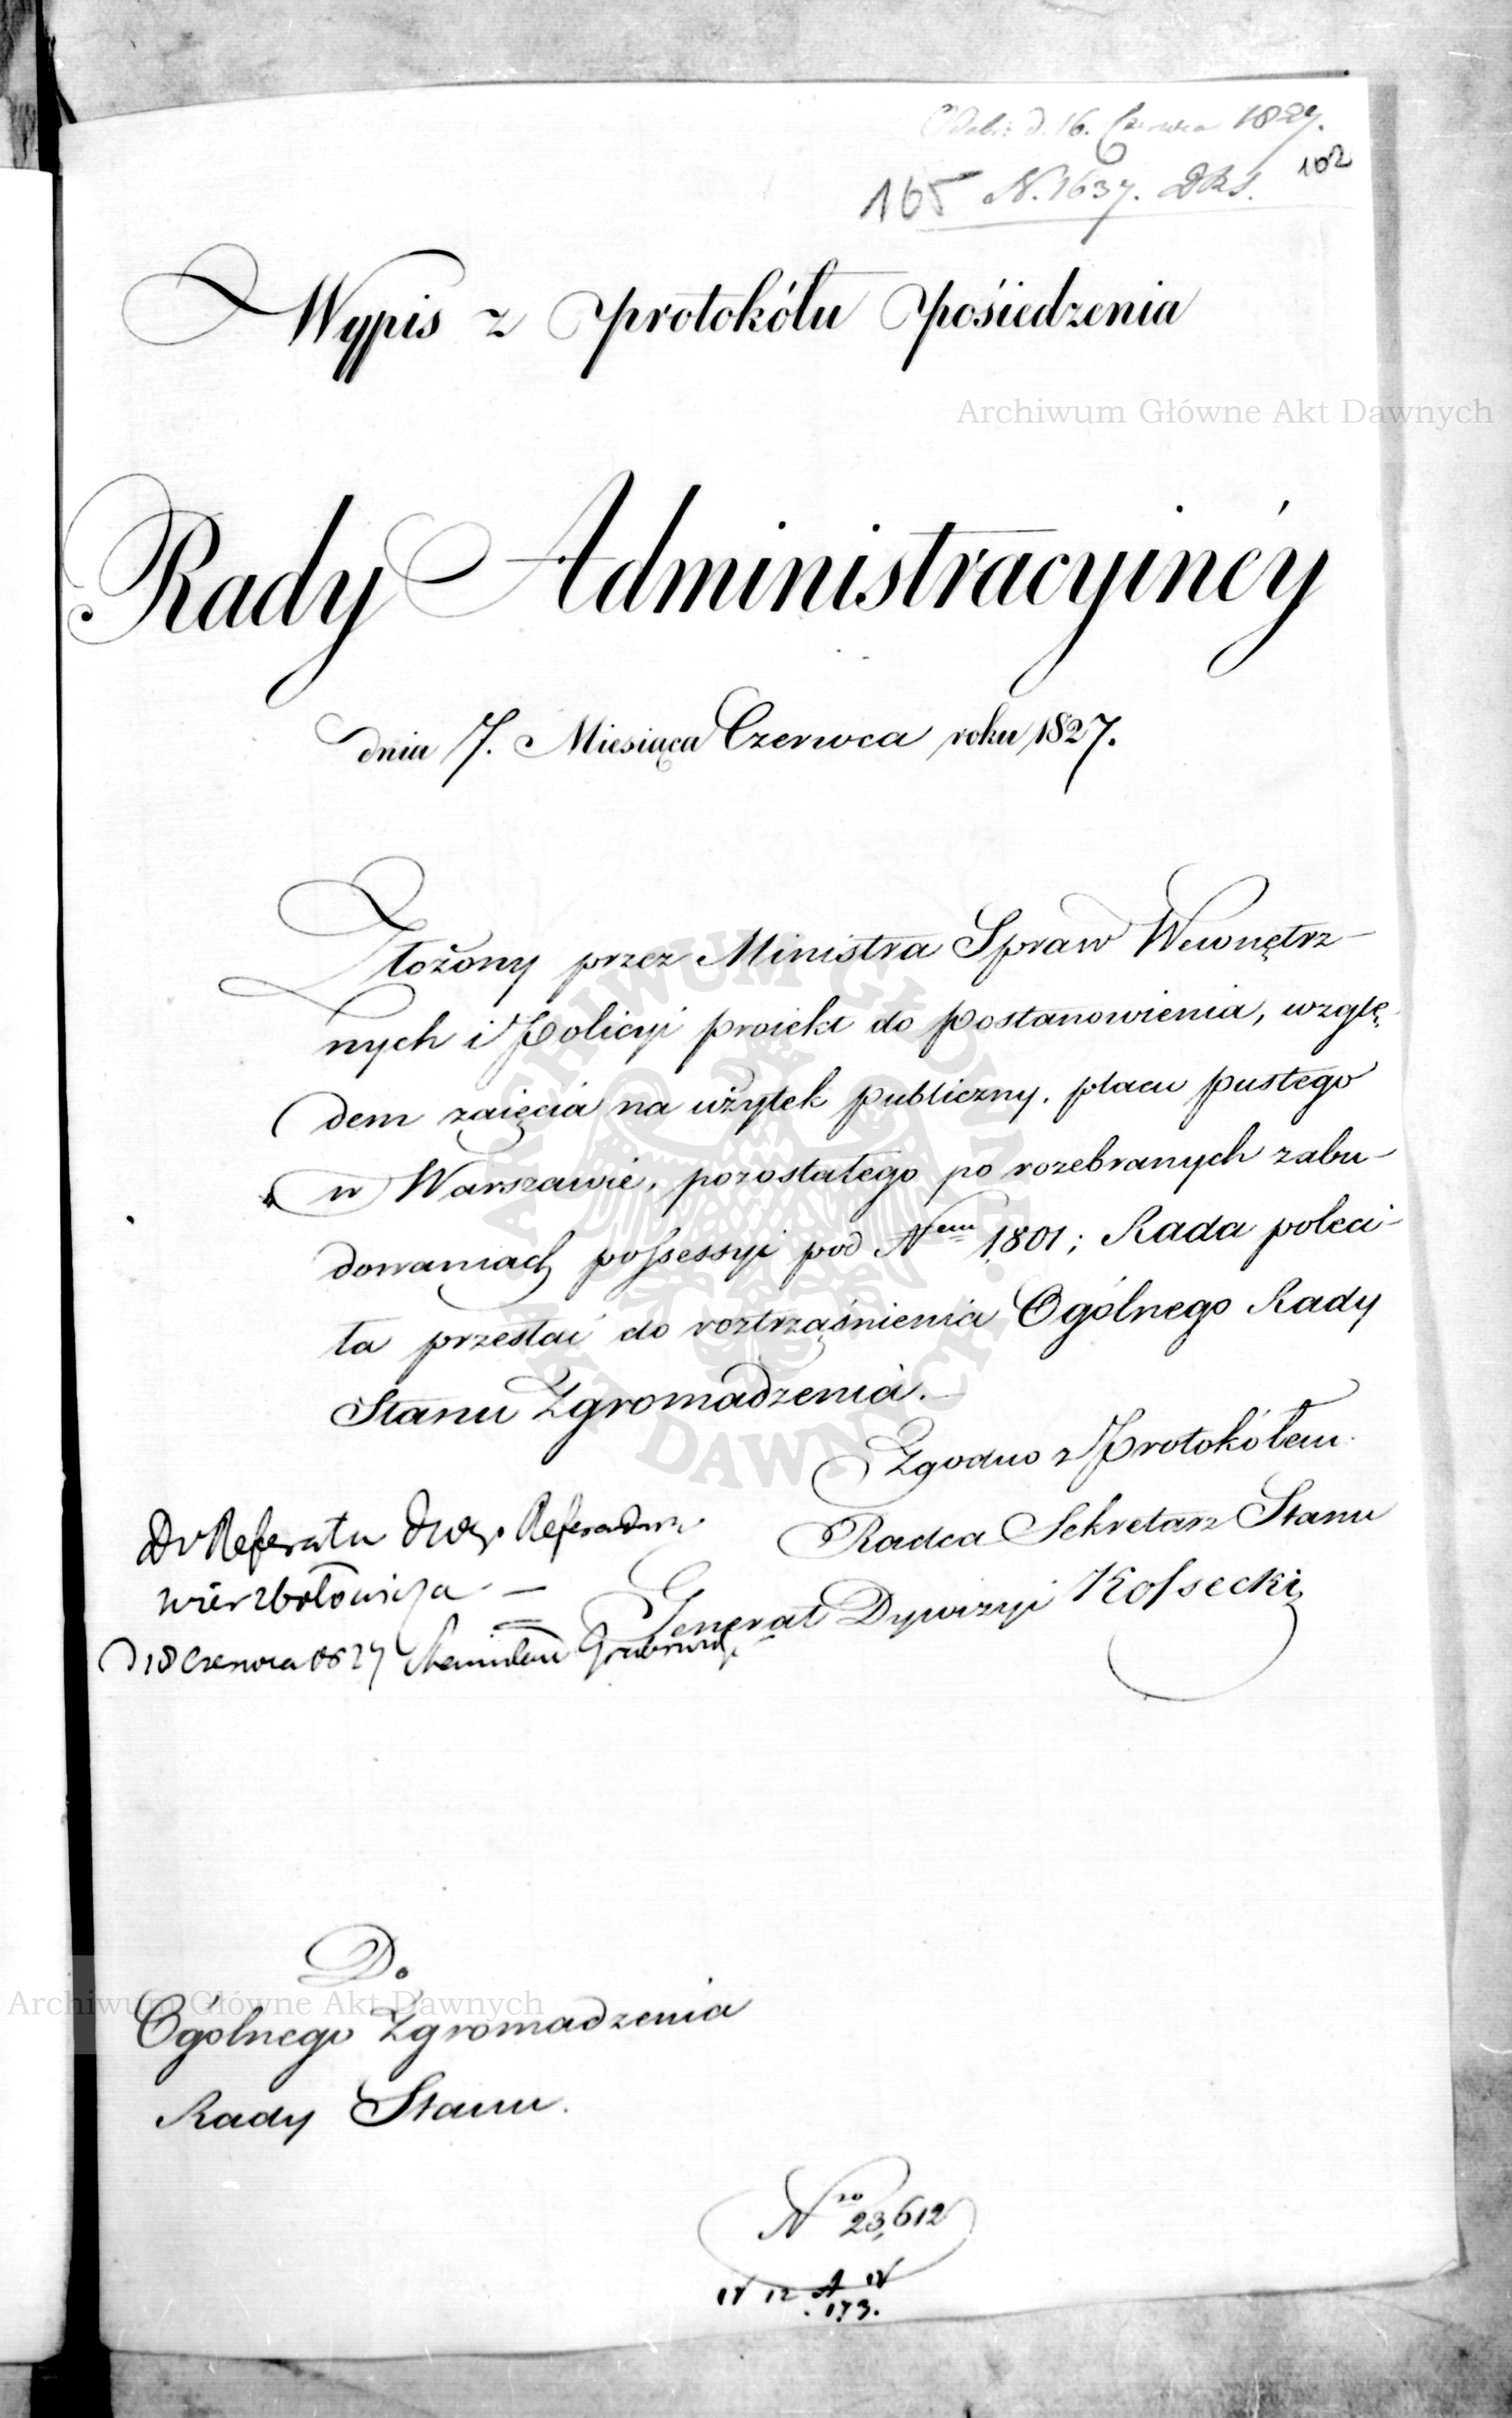 d. 16. Czerwca 1827.
165 N. 1637. DRS. 102
Wypis z protokółu posiedzenia
Archiwum Główne Akt Dawnych
Rady Administracyinéy
dnia 7. Miesiąca Czerwca roku 1827.
Złożony przez Ministra Spraw Wewnętrz-
nych i Policyi proiekt do postanowienia, wzglę-
dem zaięcia na użytek publiczny, placu pustego
w Warszawie, pozostałego po rozebranych zabu-
dowaniach possessyi pod Nem 1801; Rada poleci-
ła przesłać do roztrząśnienia Ogólnego Rady
Stanu Zgromadzenia.
Zgodno z Protokółem.
Radca Sekretarz Stanu
Generał Dywizyi Kossecki
Do Referatu Referendarza
Wierzbołowicza
d 18 Czerwca 1827 Stanisław Grabowski
ARCHIWUM GŁÓWNE AKT DAWNYCH
Do
Archiwum Główne Akt Dawnych
Ogólnego Zgromadzenia
Rady Stanu.
Nro 23,612
173.